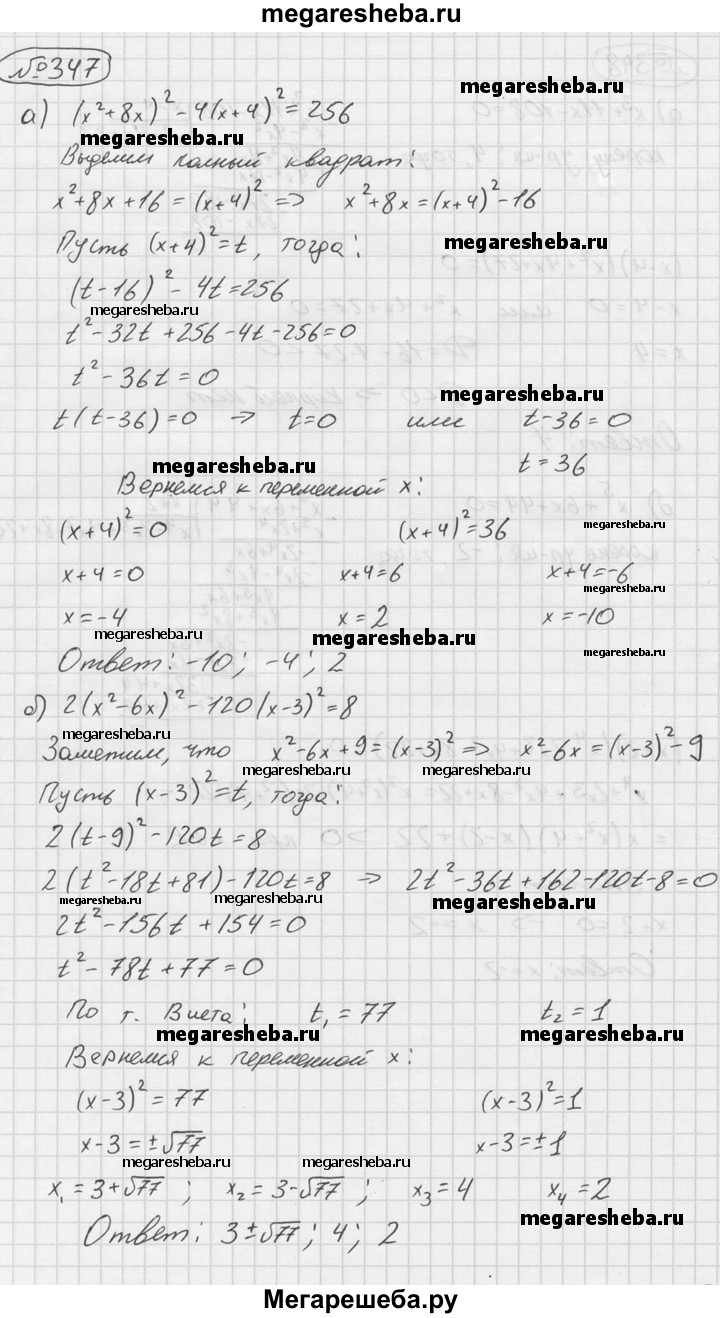 megaresheba.ru
№347
megaresheba.ru
а) (x²+8x)² - 4(x+4)² = 256
megaresheba.ru
Выделим полный квадрат:
x²+8x+16 = (x+4)² => x²+8x = (x+4)² - 16
Пусть (x+4)² = t, тогда: megaresheba.ru
(t-16)² - 4t = 256
megaresheba.ru
t² - 32t + 256 - 4t - 256 = 0
t² - 36t = 0
megaresheba.ru
t(t-36) = 0 → t=0 или t-36=0
megaresheba.ru t = 36
Вернемся к переменной x:
(x+4)² = 0 (x+4)² = 36 megaresheba.ru
x+4 = 0 x+4=6 x+4=-6
megaresheba.ru
x = -4 x = 2 x = -10
megaresheba.ru megaresheba.ru
Ответ: -10; -4; 2 megaresheba.ru
б) 2(x²-6x)² - 120(x-3)² = 8
megaresheba.ru
Заметим, что x²-6x+9 = (x-3)² => x²-6x = (x-3)² - 9
megaresheba.ru megaresheba.ru
Пусть (x-3)² = t, тогда:
2(t-9)² - 120t = 8
2(t²-18t+81) - 120t = 8 → 2t²-36t+162-120t-8=0
megaresheba.ru megaresheba.ru megaresheba.ru
2t² - 156t + 154 = 0
t² - 78t + 77 = 0
По т. Виета: t₁ = 77 t₂ = 1
megaresheba.ru megaresheba.ru
Вернемся к переменной x:
(x-3)² = 77 (x-3)² = 1
x-3 = ±√77 x-3 = ±1
megaresheba.ru megaresheba.ru
x₁ = 3+√77 ; x₂ = 3-√77 ; x₃ = 4 x₄ = 2
megaresheba.ru
Ответ: 3±√77; 4; 2
Мегарешеба.ру